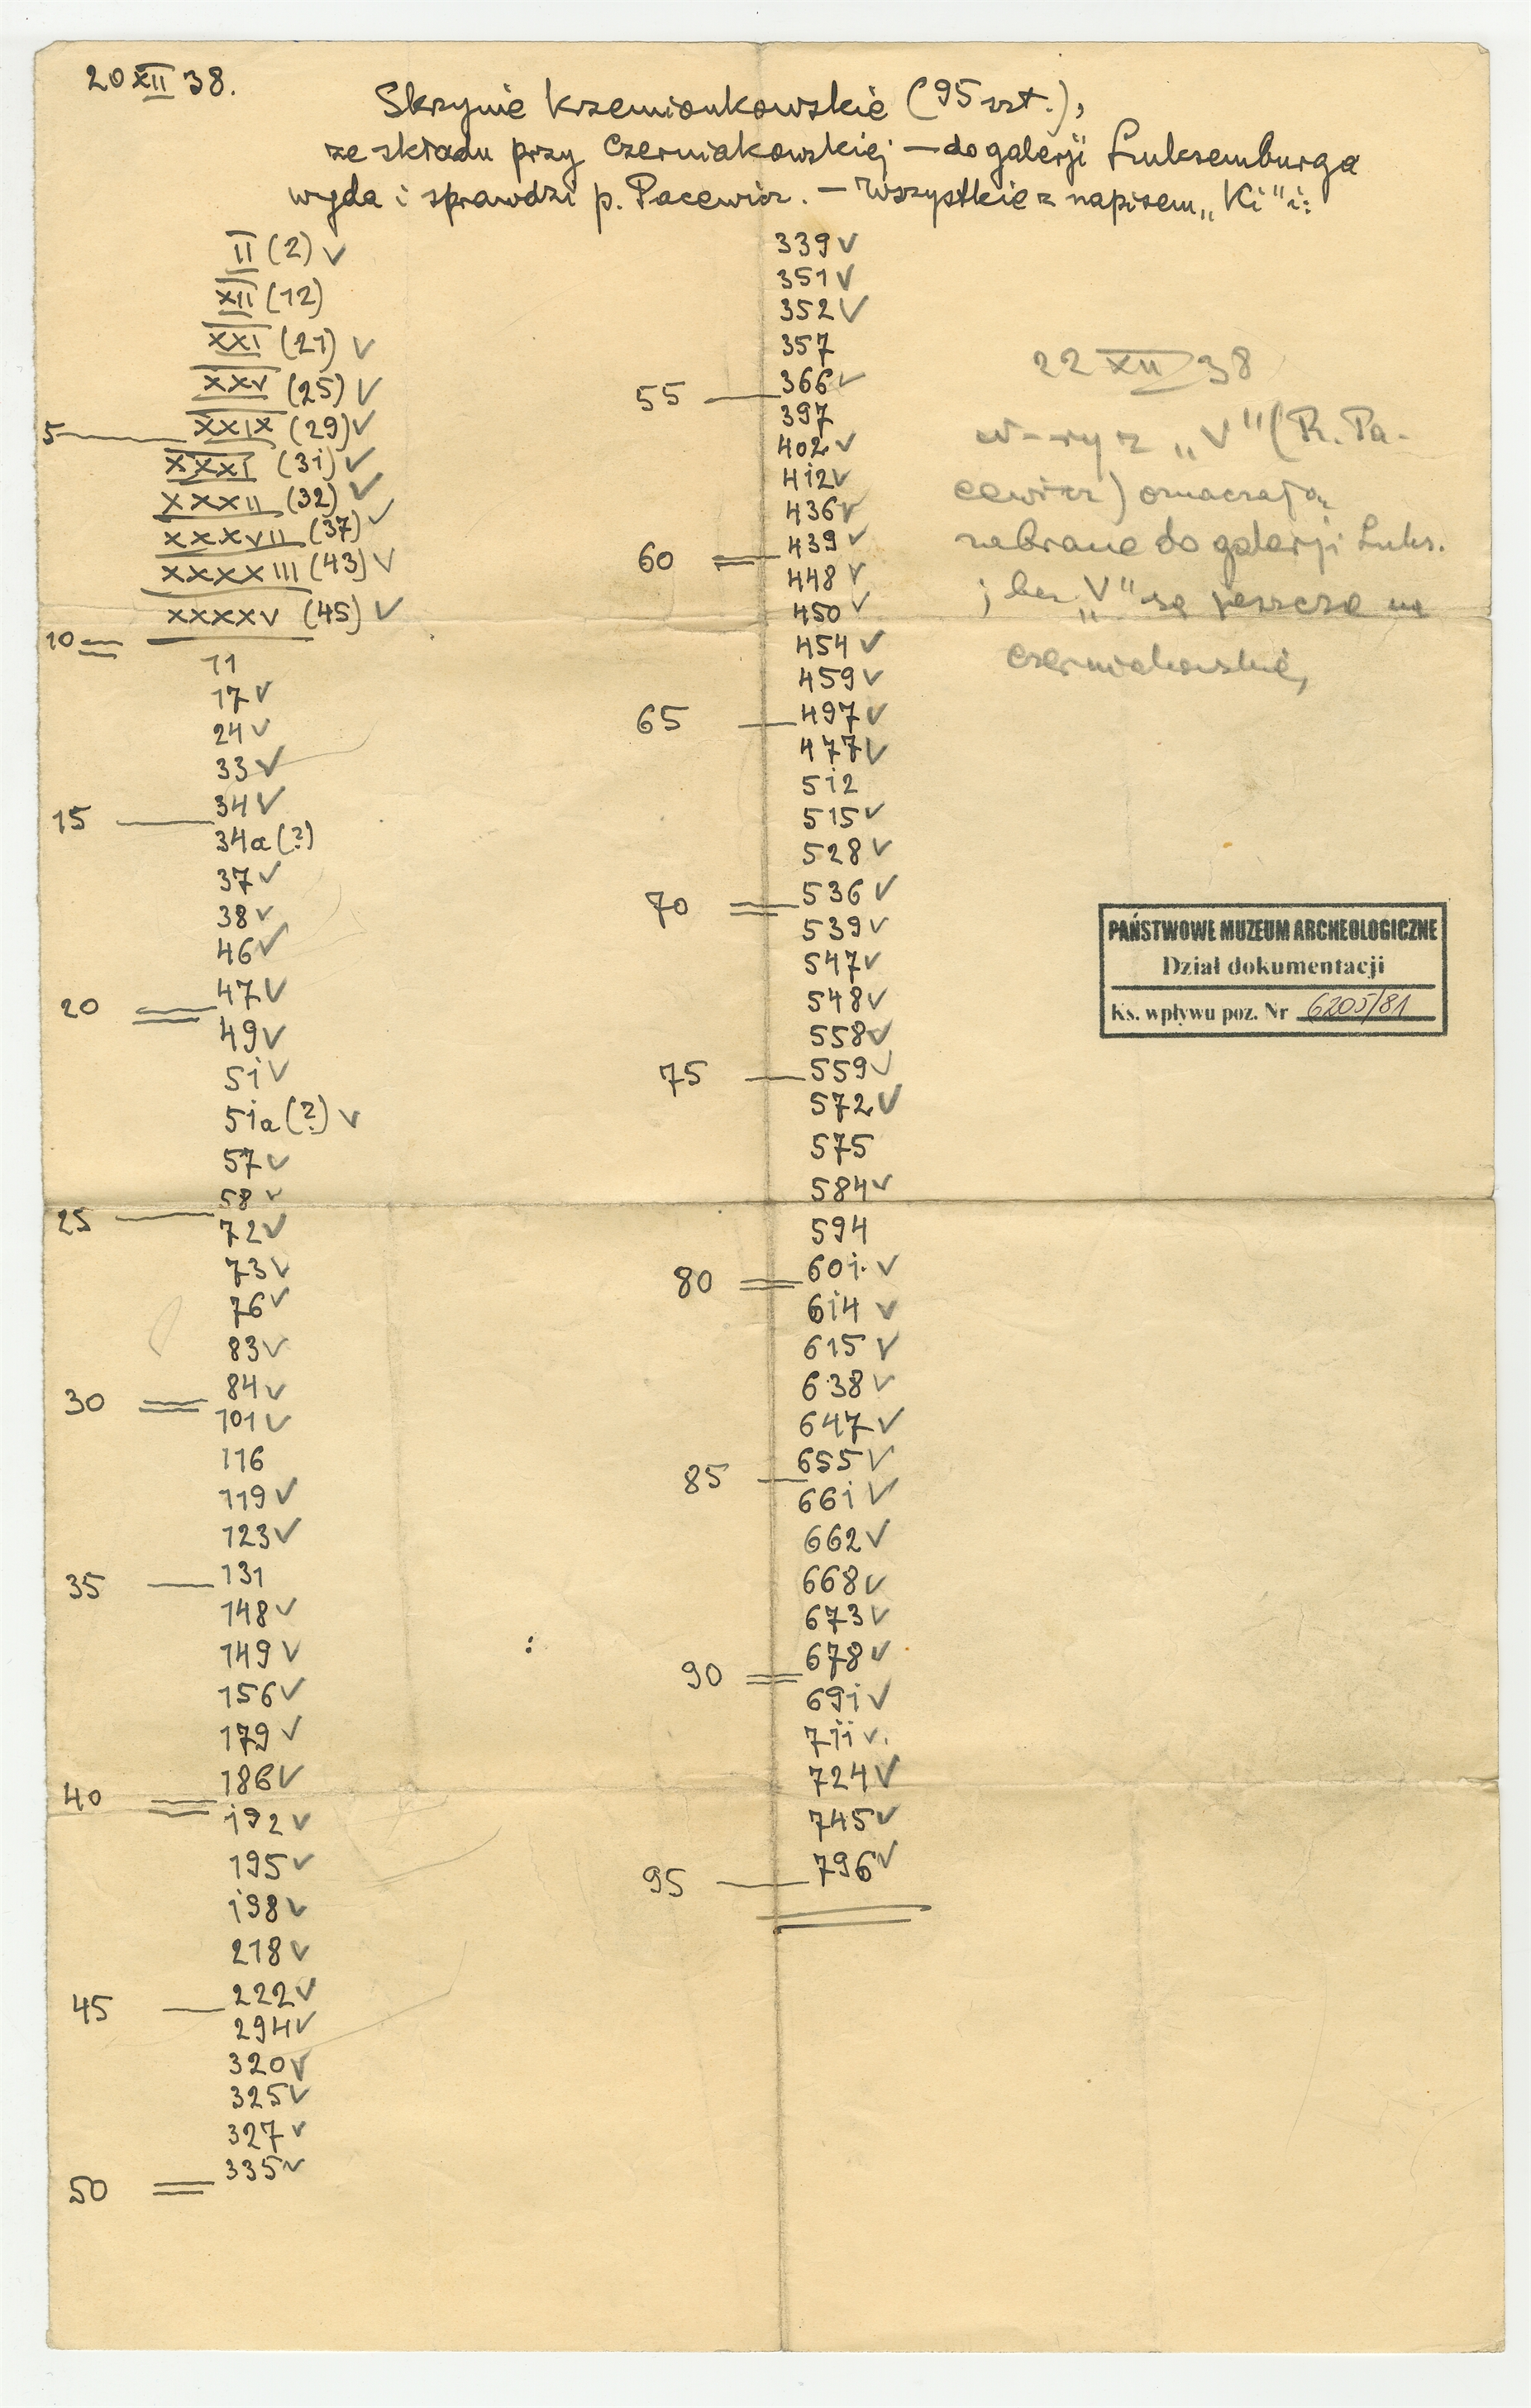 20 XII 38.
Skrzynie krzemionkowskie (95 szt.),
ze składu przy Czerniakowskiej — do galerji Luksemburga
wyda i sprawdzi p. Pacewicz. — Wszystkie z napisem „Ki" i:
II (2) V
XII (12)
XXI (21) V
XXV (25) V
5 — XXIX (29) V
XXXI (31) V
XXXII (32) V
XXXVII (37) V
XXXXIII (43) V
XXXXV (45) V
10 =
11
17 V
24 V
33 V
15 — 34 V
34a (?)
37 V
38 V
46 V
20 = 47 V
49 V
51 V
51a (?) V
57 V
25 — 58 V
72 V
73 V
76 V
83 V
30 = 84 V
101 V
116
119 V
123 V
35 — 131
148 V
149 V
156 V
179 V
40 = 186 V
192 V
195 V
198 V
218 V
45 — 222 V
294 V
320 V
325 V
327 V
50 = 335 V
339 V
351 V
352 V
357
55 — 366 V
397
402 V
412 V
436 V
60 = 439 V
448 V
450 V
454 V
459 V
65 — 497 V
477 V
512
515 V
528 V
70 = 536 V
539 V
547 V
548 V
558 V
75 — 559 V
572 V
575
584 V
594
80 = 601. V
614 V
615 V
638 V
647 V
85 — 655 V
661 V
662 V
668 V
673 V
90 = 678 V
691 V
711 V.
724 V
745 V
95 — 796 V
22 XII 38
z „V" (R. Pa-
cewicz) oznaczają
zabrane do galerji Luks.
; bez „V" są jeszcze na
Czerniakowskiej,
PAŃSTWOWE MUZEUM ARCHEOLOGICZNE
Dział dokumentacji
Ks. wpływu poz. Nr 6205/81